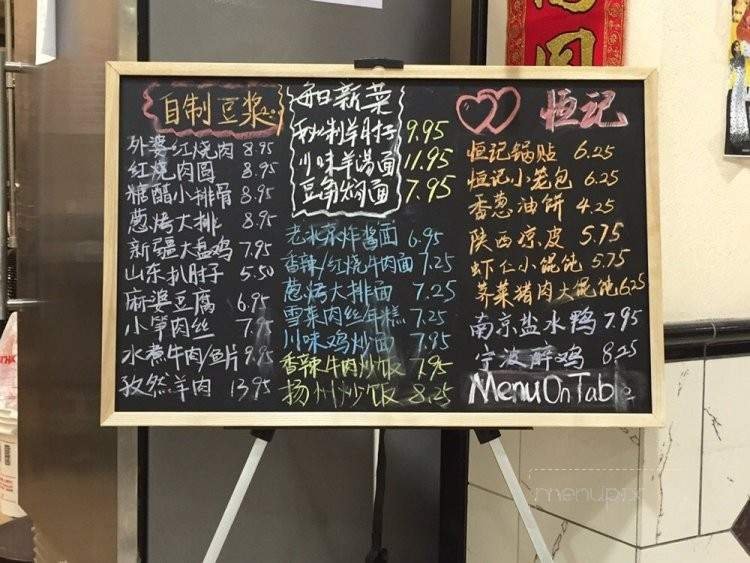 自制豆浆
外婆红烧肉 8.95
红烧肉圆 8.95
糖醋小排骨 8.95
葱烤大排 8.95
新疆大盘鸡 7.95
山东扒肘子 5.50
麻婆豆腐 6.95
小笋肉丝 7.95
水煮牛肉/鱼片 9.95
孜然羊肉 13.95
每日新菜
秘制羊肘子 9.95
川味羊汤面 11.95
豆角焖面 7.95
老北京炸酱面 6.95
香辣/红烧牛肉面 7.25
葱烤大排面 7.25
雪菜肉丝年糕 7.25
川味鸡炒面 7.95
香辣牛肉炒饭 7.95
扬州炒饭 8.25
恒记
恒记锅贴 6.25
恒记小笼包 6.25
香葱油饼 4.25
陕西凉皮 5.75
虾仁小馄饨 5.75
荠菜猪肉大馄饨 6.25
南京盐水鸭 7.95
宁波醉鸡 8.25
Menu On Table
menupix